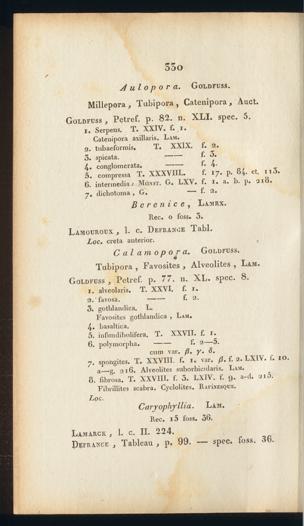 330
Aulopora. Goldfuss.
Millepora, Tubipora, Catenipora, Auct.
Goldfuss, Petref. p. 82. n. XLI. spec. 5.
1. Serpens. T. XXIV. f. 1.
Catenipora axillaris. Lam.
2. tubaeformis. T. XXIX. f. 2.
3. spicata. —— f. 3.
4. conglomerata. —— f. 4.
5. compressa T. XXXVIII. f. 17. p. 84. et. 113.
6. intermedia: Münst. G. LXV. f. 1. a. b. p. 218.
7. dichotoma, G. — f. 2.
Berenice, Lamrx.
Rec. 0 foss. 3.
Lamouroux, l. c. Defrance Tabl.
Loc. creta anterior.
Calamopora. Goldfuss.
Tubipora, Favosites, Alveolites, Lam.
Goldfuss, Petref. p. 77. n. XL. spec. 8.
1. alveolaris. T. XXVI. f. 1.
2. favosa. —— f. 2.
3. gothlandica. L.
Favosites gothlandica, Lam.
4. basaltica.
5. infundibolifera. T. XXVII. f. 1.
6. polymorpha. —— f. 2—5.
cum var. β. γ. δ.
7. spongites. T. XXVIII. f. 1. var. β. f. 2. LXIV. f. 10.
a—g. 216. Alveolites suborbicularis. Lam.
8. fibrosa. T. XXVIII. f. 3. LXIV. f. 9. a-d. 215.
Fibrillites scabra. Cyclolites. Rafinesque.
Loc.
Caryophyllia. Lam.
Rec. 15 foss. 36.
Lamarck, l. c. II. 224.
Defrance, Tableau, p. 99. — spec. foss. 36.